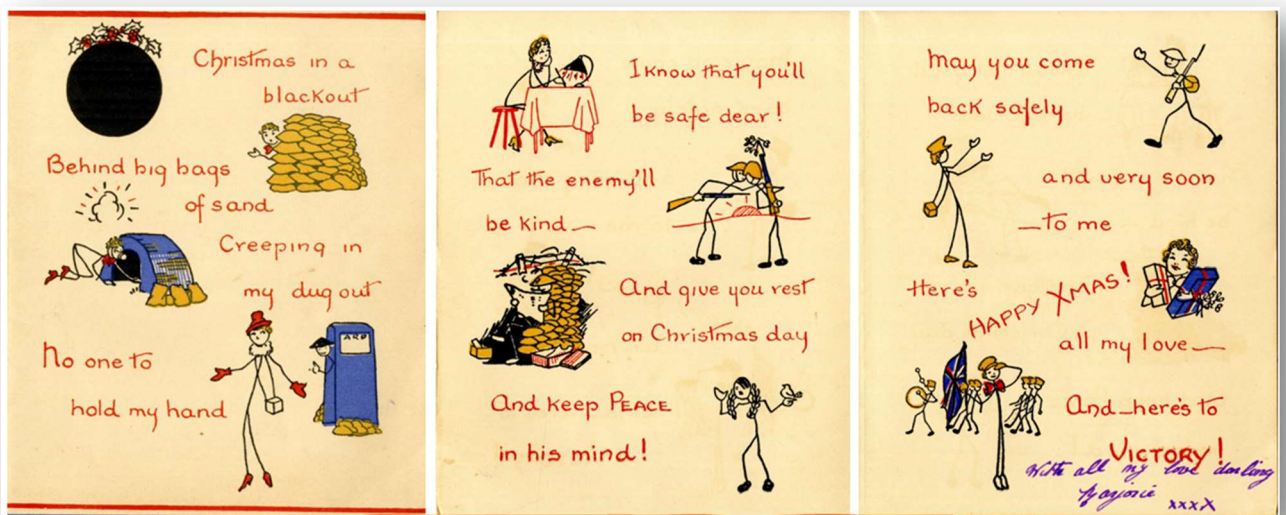 Christmas in a
blackout
Behind big bags
of sand
Creeping in
my dug out
ARP
No one to
hold my hand
I know that you'll
be safe dear!
That the enemy'll
be kind—
And give you rest
on Christmas day
And keep PEACE
in his mind!
May you come
back safely
and very soon
—to me
Here's
HAPPY XMAS!
all my love—
And—here's to
VICTORY!
With all my love darling
Marjorie xxxx